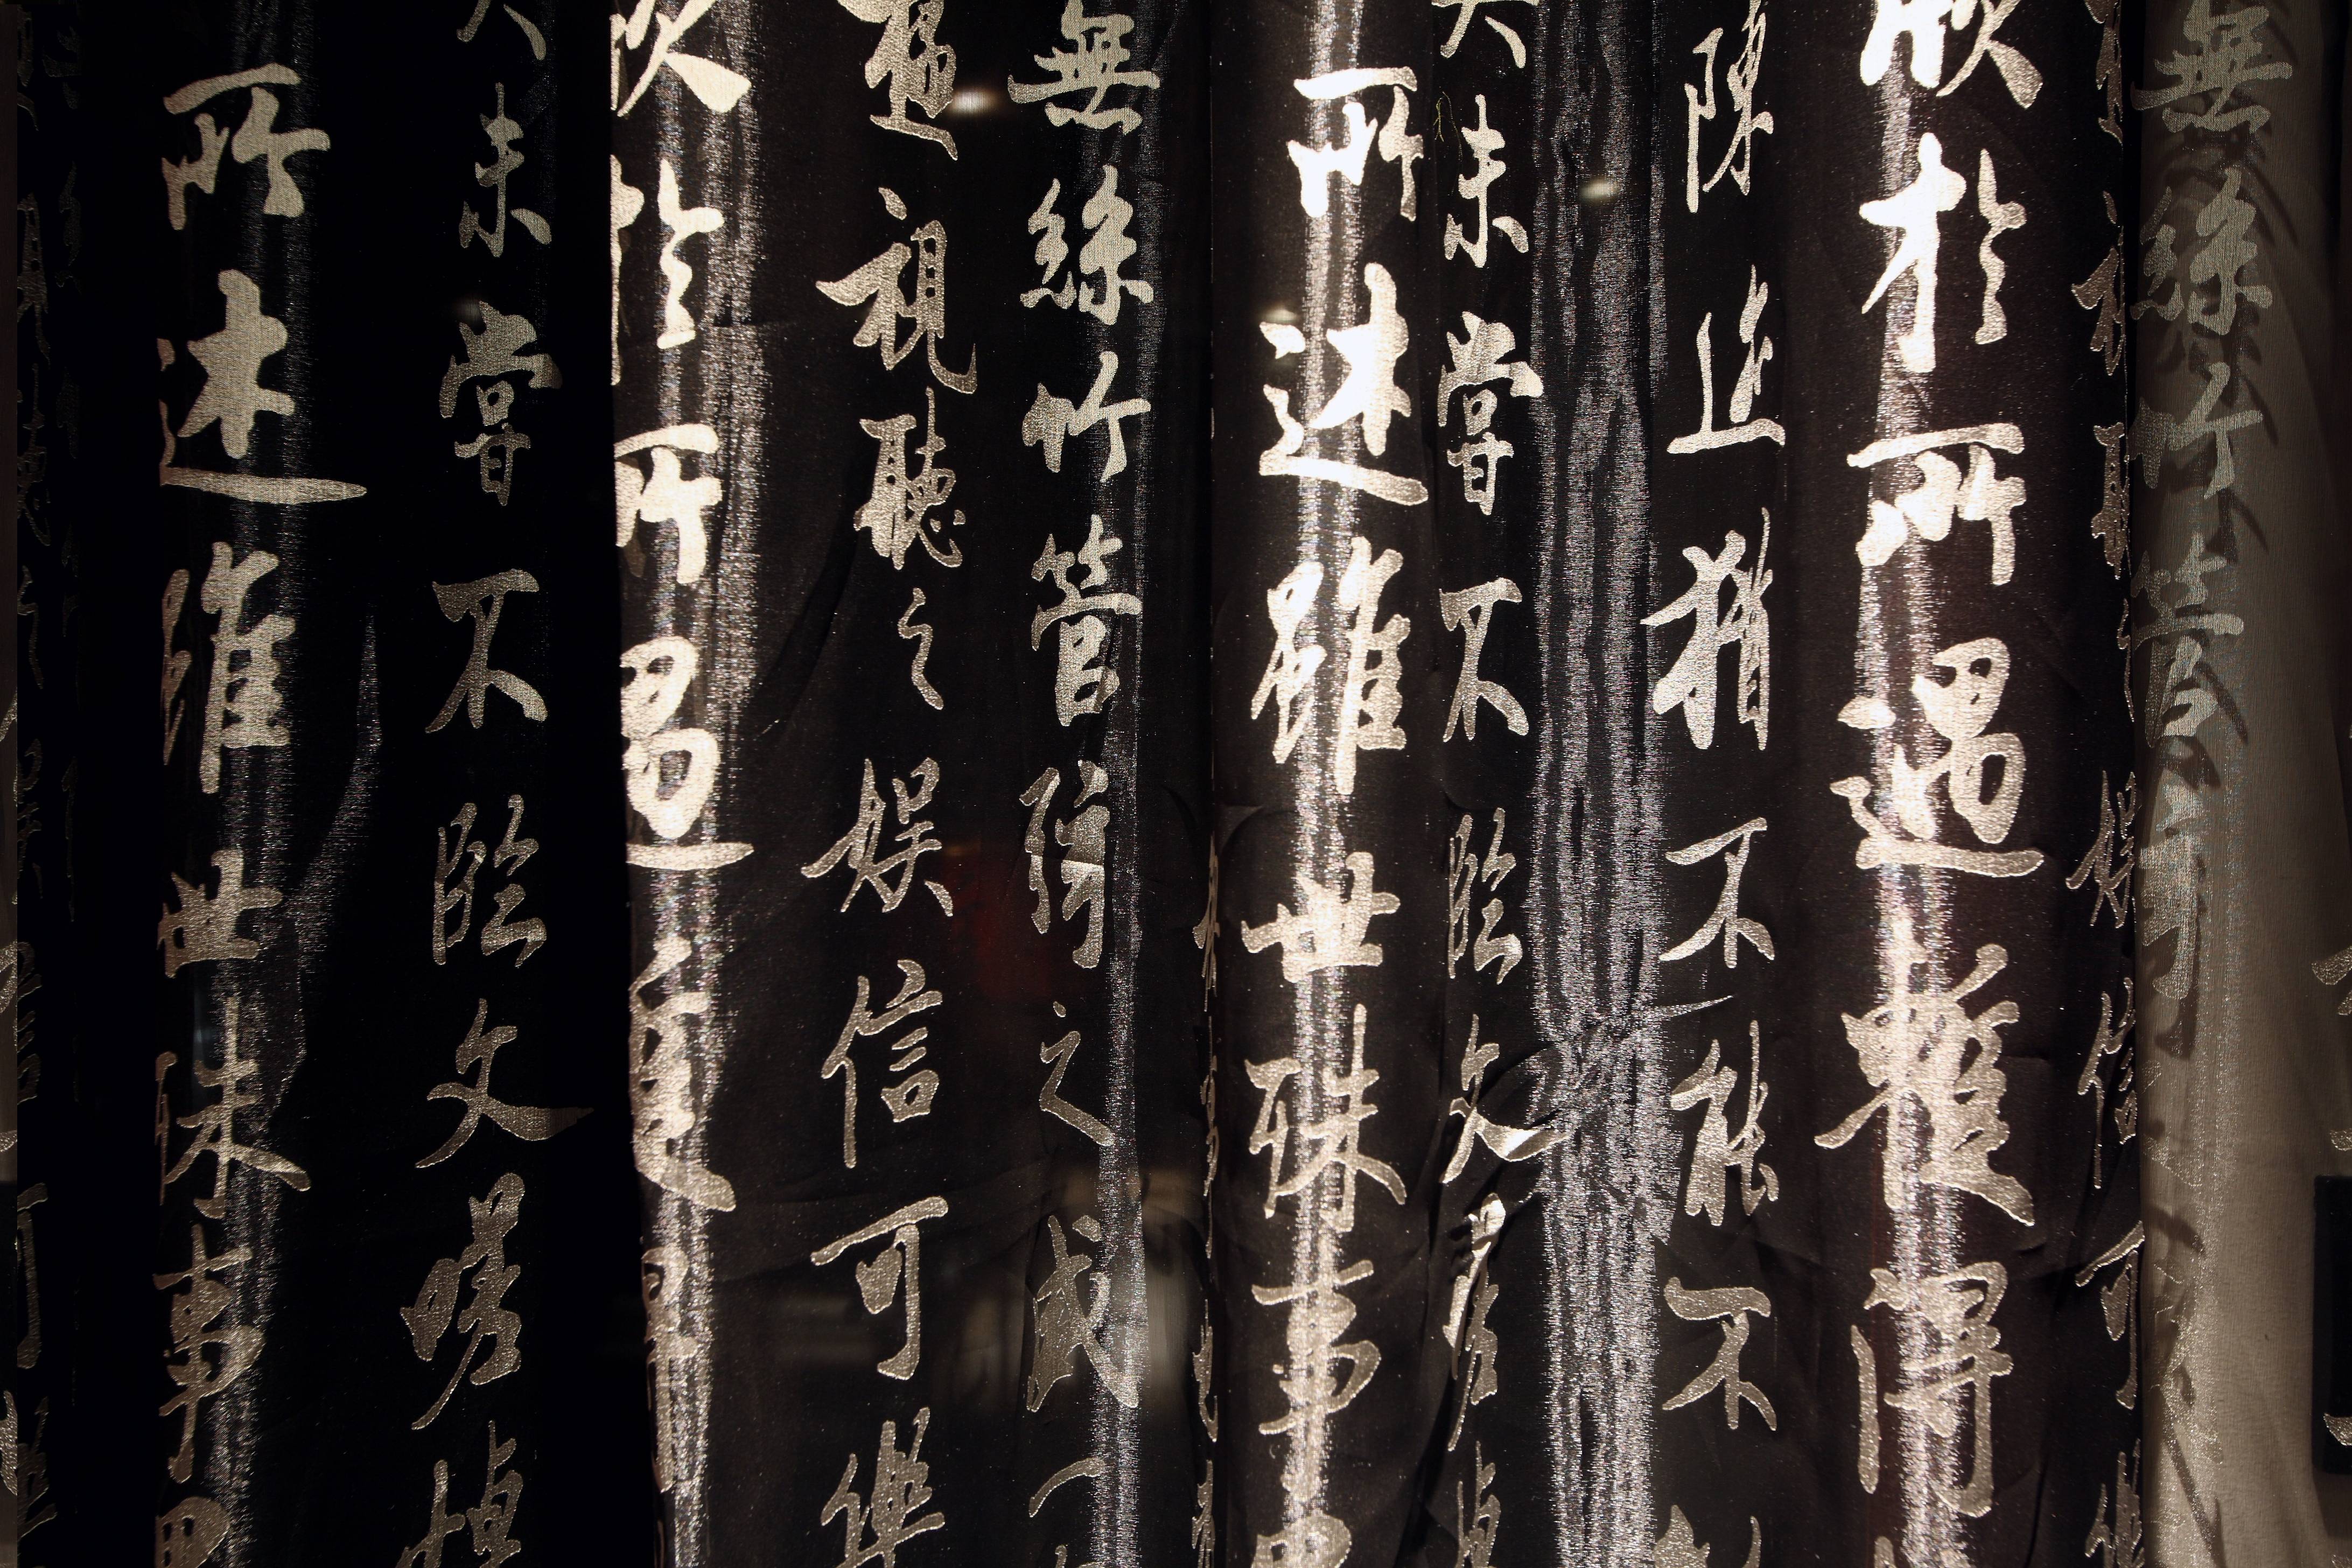 無絲竹管弦
視聽娛信可
欣於所遇暫得
陳迹猶不能不
未嘗不臨文嗟悼
所述雖世殊事異
無絲竹管弦之盛一
極視聽之娛信可樂
欣於所遇暫得
未嘗不臨文嗟悼
所述雖世殊事異